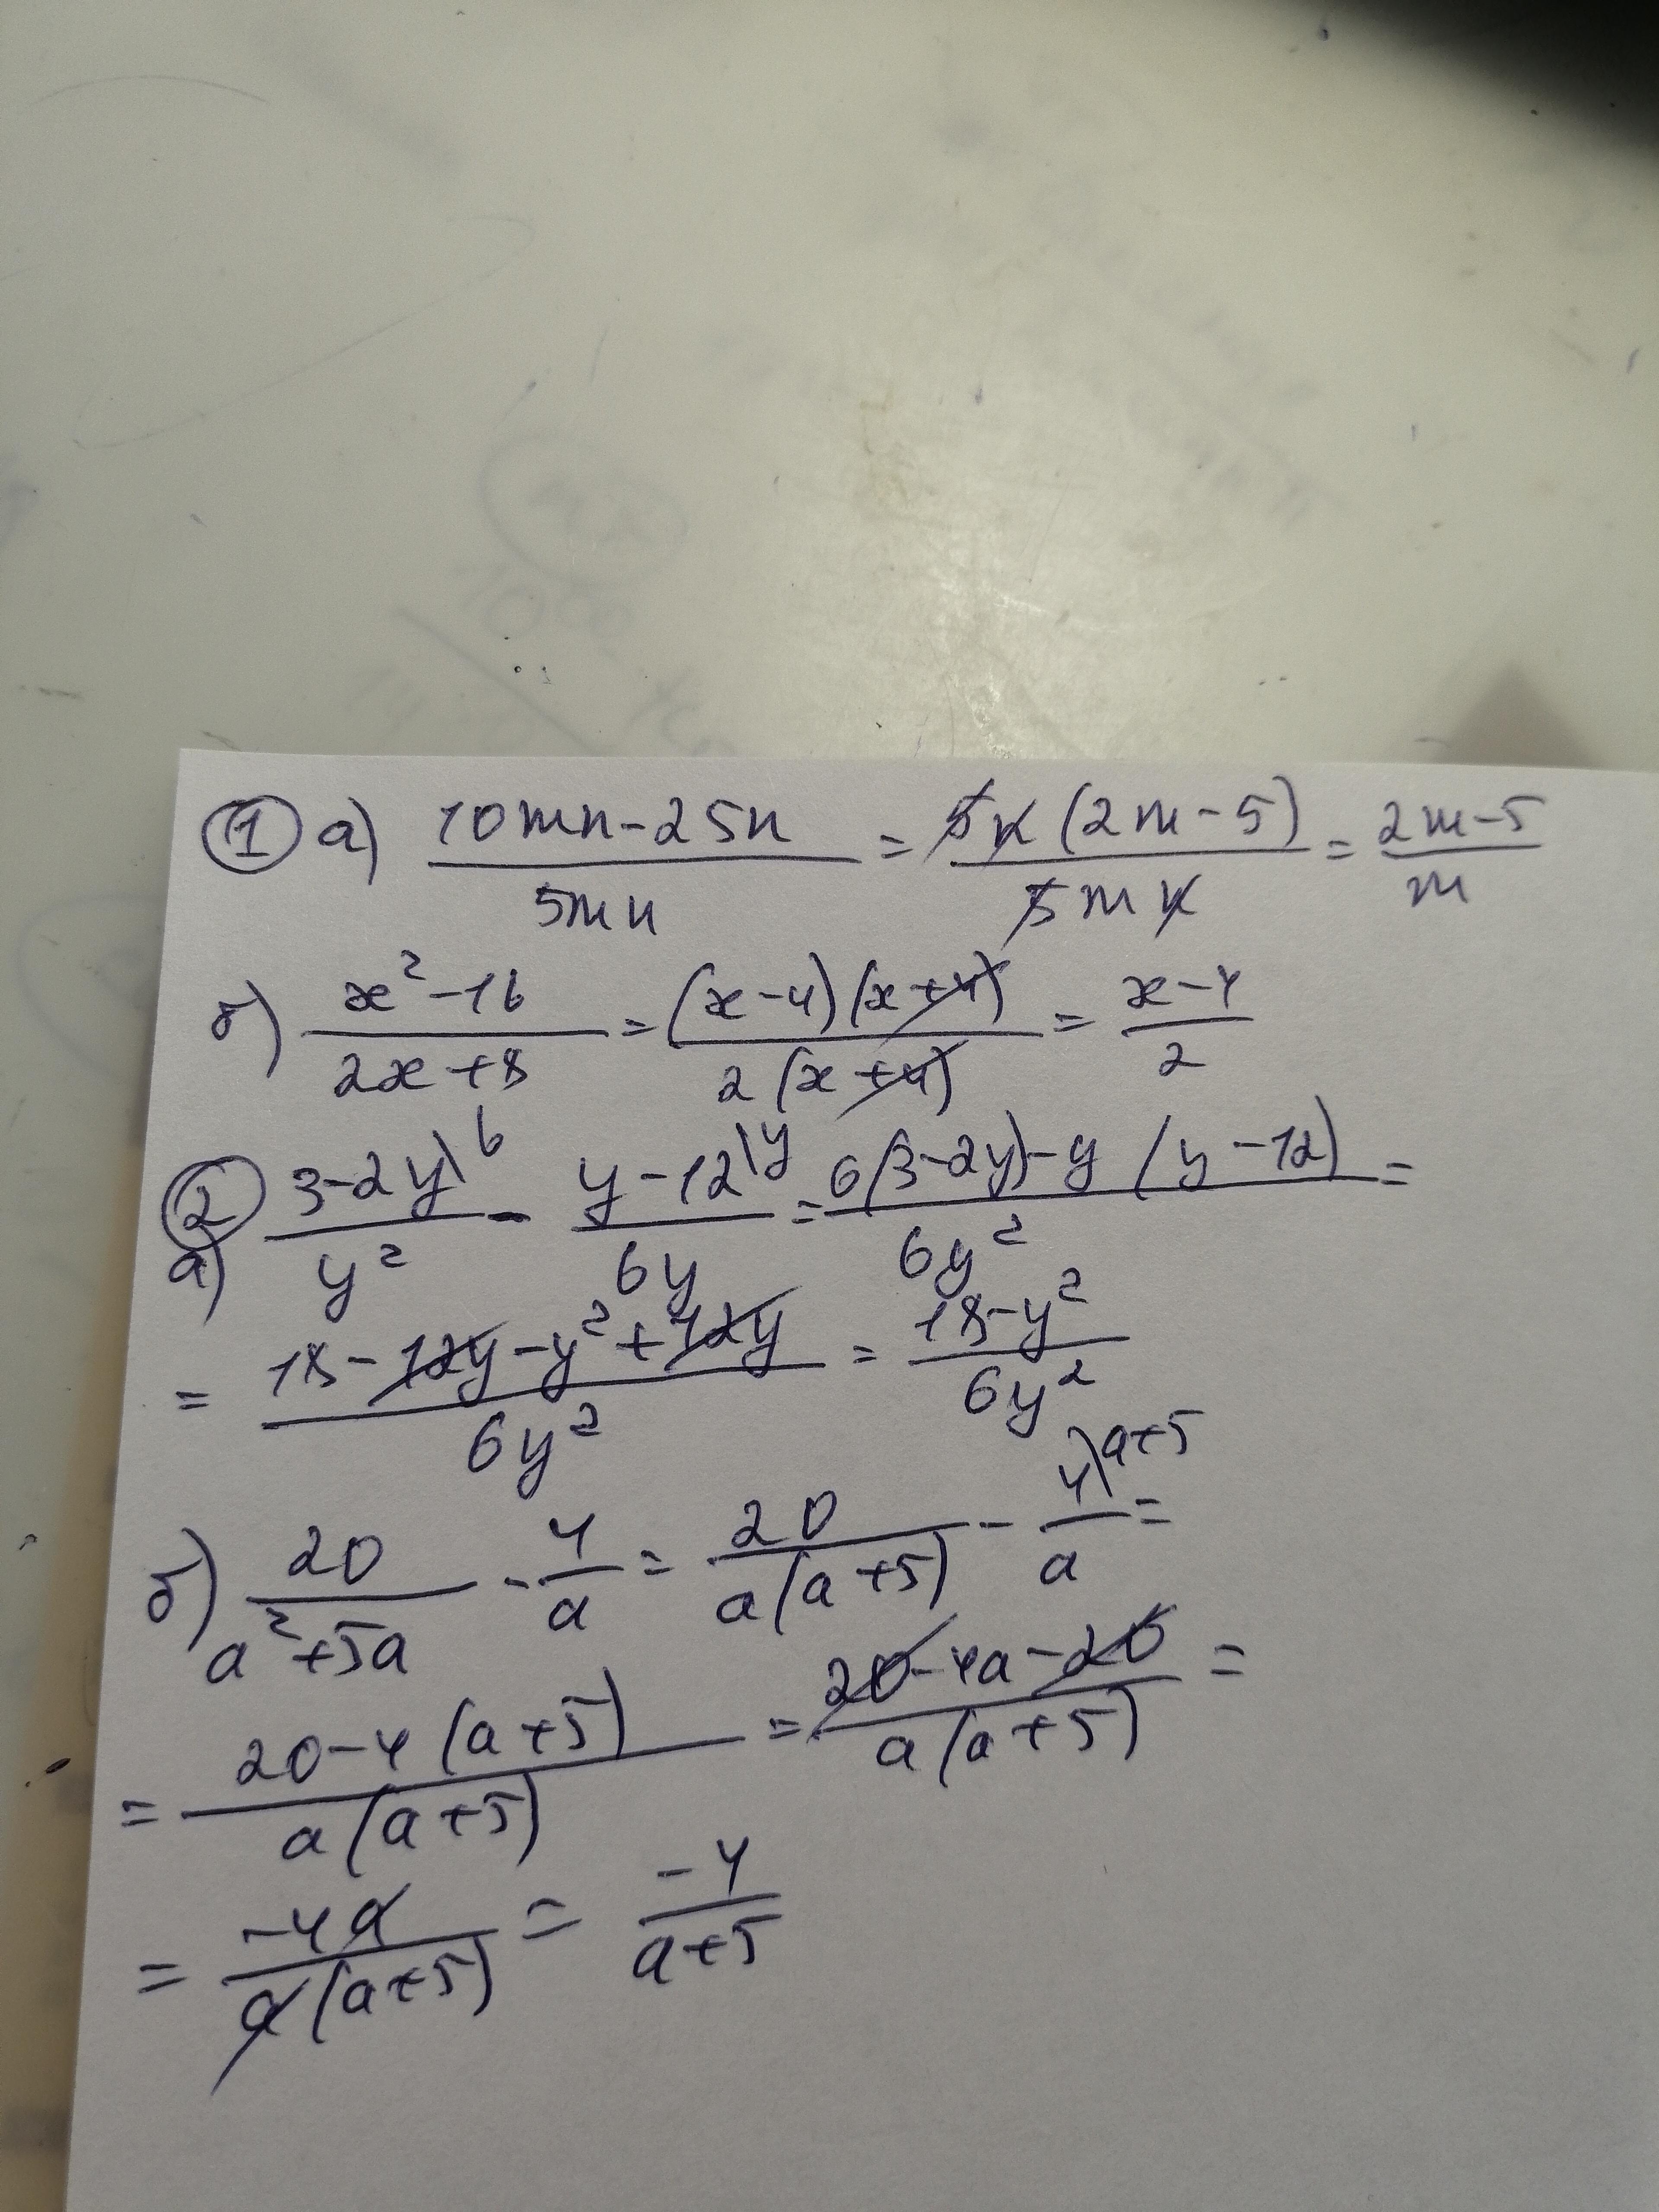 1 а) (10mn-25n)/(5mn) = (5n(2m-5))/(5mn) = (2m-5)/m
б) (x²-16)/(2x+8) = ((x-4)(x+4))/(2(x+4)) = (x-4)/2
2 а) (3-2y)/y² \6 - (y-12)/(6y) \y = (6(3-2y)-y(y-12))/(6y²) =
= (18-12y-y²+12y)/(6y²) = (18-y²)/(6y²)
б) 20/(a²+5a) - 4/a = 20/(a(a+5)) - 4/a \a+5 =
= (20-4(a+5))/(a(a+5)) = (20-4a-20)/(a(a+5)) =
= (-4a)/(a(a+5)) = (-4)/(a+5)